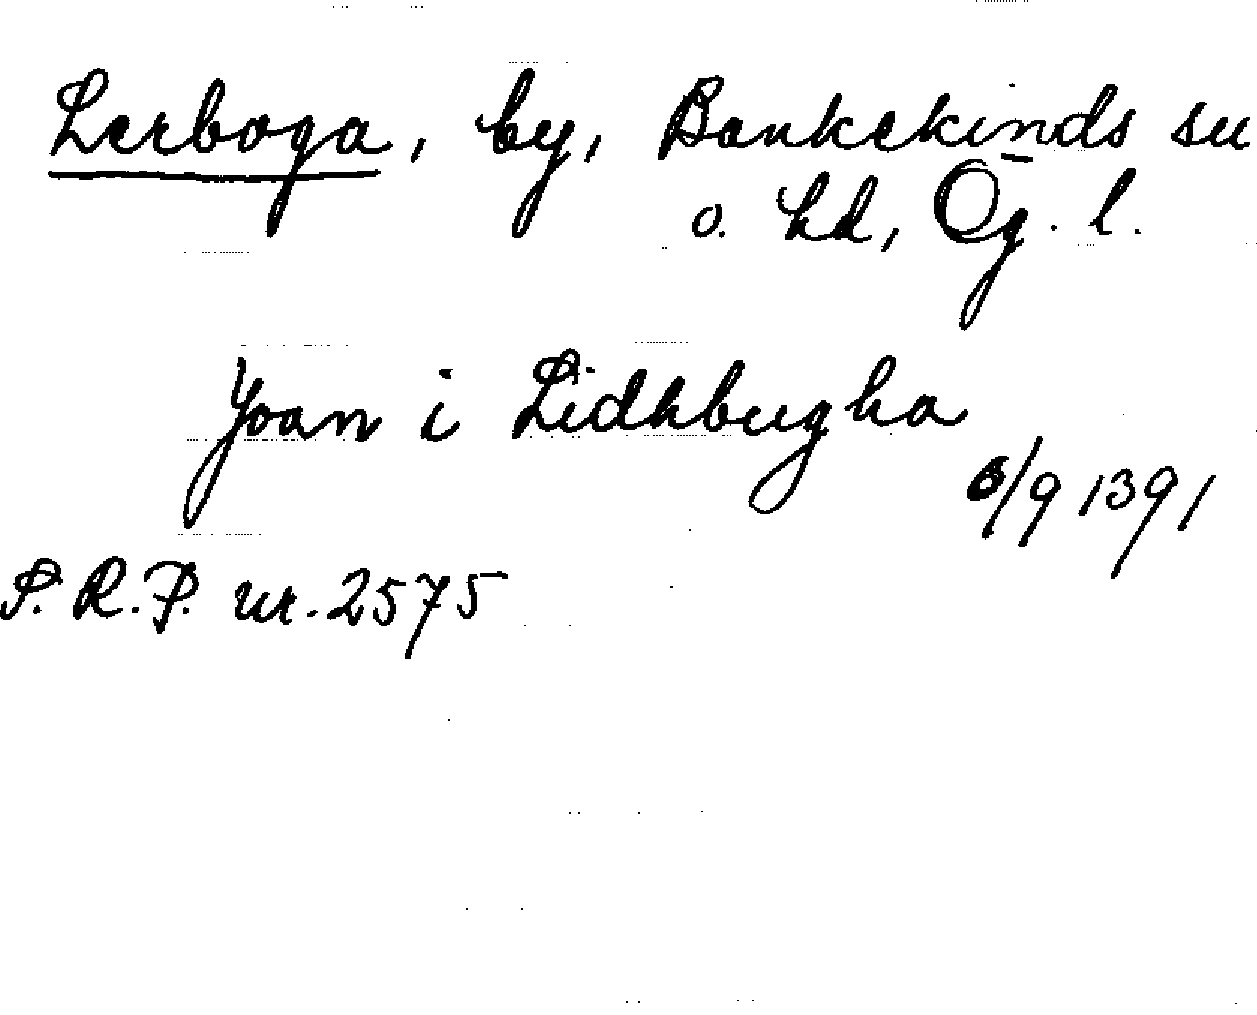 Lerboga, by, Bankekinds sn
o. hd, Ög. l.
Joan i Lidhbugha
6/9 1391
S. R. P. nr. 2575